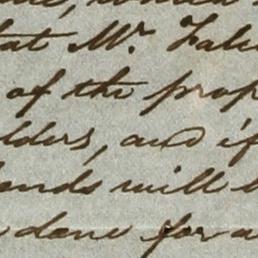 at Mr.
of the prop
lders, and if
ends will b
done for a